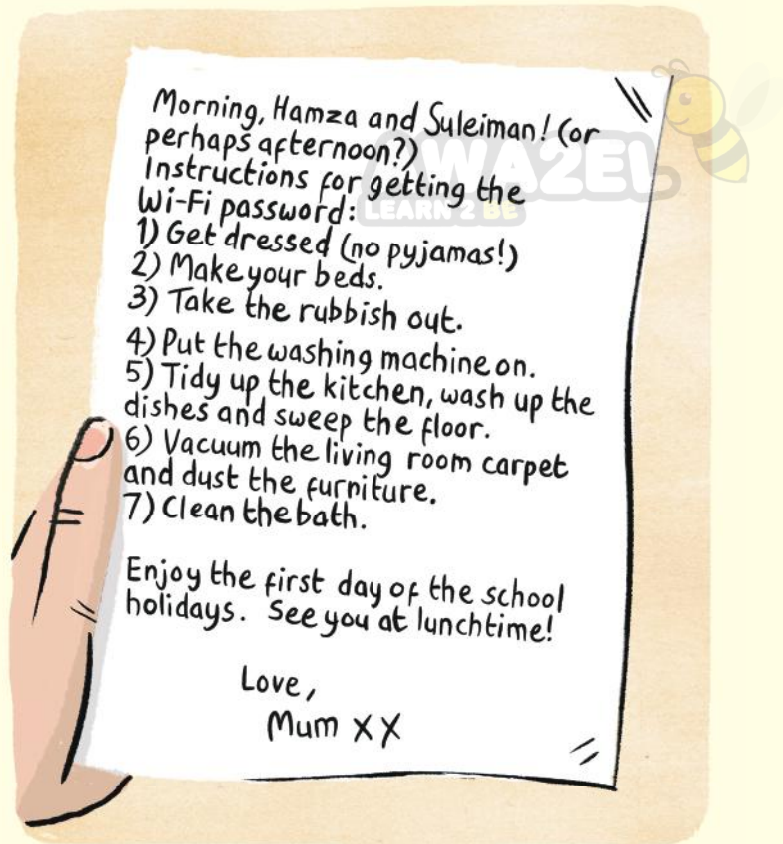 Morning, Hamza and Suleiman! (or
perhaps afternoon?)
Instructions for getting the
Wi-Fi password:
1) Get dressed (no pyjamas!)
2) Make your beds.
3) Take the rubbish out.
4) Put the washing machine on.
5) Tidy up the kitchen, wash up the
dishes and sweep the floor.
6) Vacuum the living room carpet
and dust the furniture.
7) Clean the bath.
Enjoy the first day of the school
holidays. See you at lunchtime!
Love,
Mum XX
AWA2EL
LEARN 2 BE